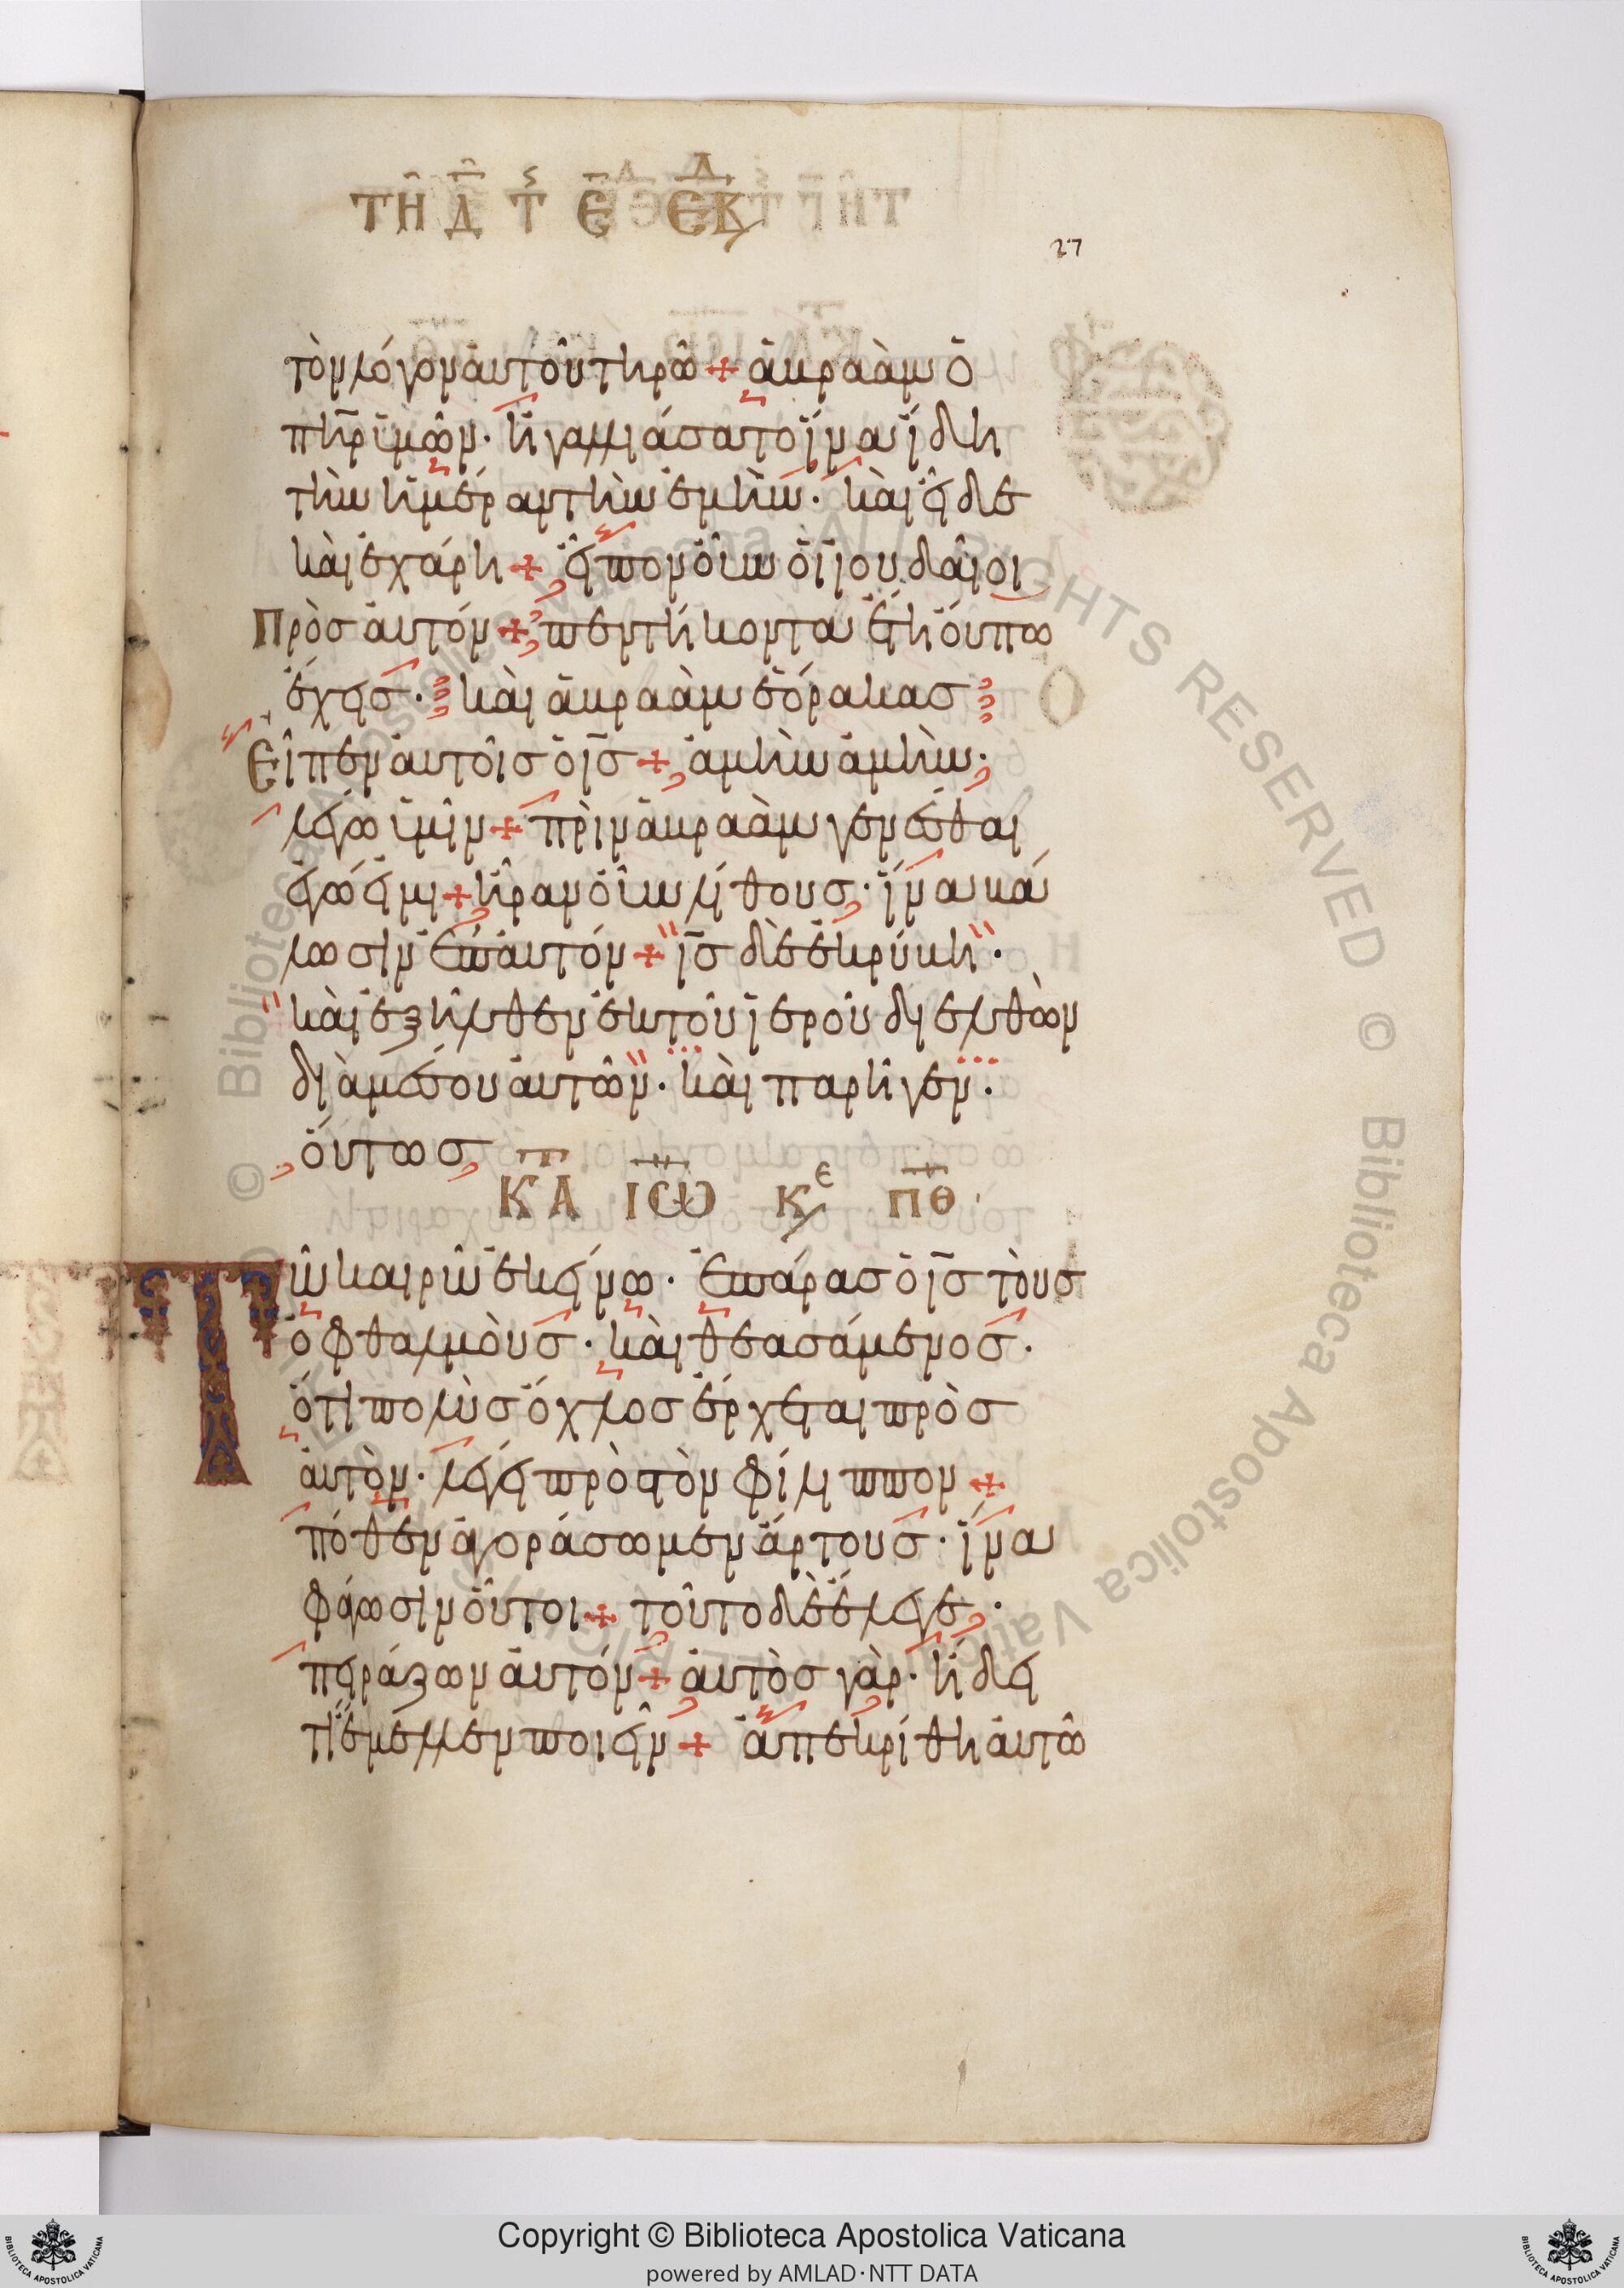 ΤΗ Δ Τ ς Ε ΕΒΔ
27
τὸν λόγον αὐτοῦ τηρῶ + ἀβραὰμ ὁ
πηρ ὑμῶν · ἠγαλλιάσατο ἵνα ἴδη
τὴν ἡμέραν τὴν ἐμήν · καὶ εἶδε
καὶ ἐχάρη + εἶπον οὖν οἱ ἰουδαῖοι
Πρὸσ αὐτόν + πεντήκοντα ἔτη οὔπω
ἔχεισ · καὶ ἀβραὰμ ἑόρακασ
Εἶπεν αὐτοῖσ ὁ ισ + ἀμὴν ἀμὴν ·
λέγω ὑμῖν + πρὶν ἀβραὰμ γενέσθαι
ἐγώ εἰμι + ἦραν οὖν λίθουσ · ἵνα βά
λωσιν ἐπ αὐτόν + ισ δὲ ἐκρύβη ·
καὶ ἐξῆλθεν ἐκ τοῦ ἱεροῦ διελθὼν
διὰ μέσου αὐτῶν · καὶ παρῆγεν ·
οὕτωσ
Κ Α ΙΩ Κε ΠΘ
Τῶ καιρῶ ἐκείνω · ἐπάρασ ὁ ισ τοὺσ
ὀφθαλμοὺσ · καὶ θεασάμενοσ ·
ὅτι πολὺσ ὄχλοσ ἔρχεται πρὸσ
αὐτὸν · λέγει πρὸσ τὸν φίλιππον +
πόθεν ἀγοράσωμεν ἄρτουσ · ἵνα
φάγωσιν οὗτοι + τοῦτο δὲ ἔλεγε ·
πειράζων αὐτόν + αὐτὸσ γὰρ · ἤδει
τί ἔμελλεν ποιεῖν + ἀπεκρίθη αὐτῶ
Copyright © Biblioteca Apostolica Vaticana
powered by AMLAD·NTT DATA